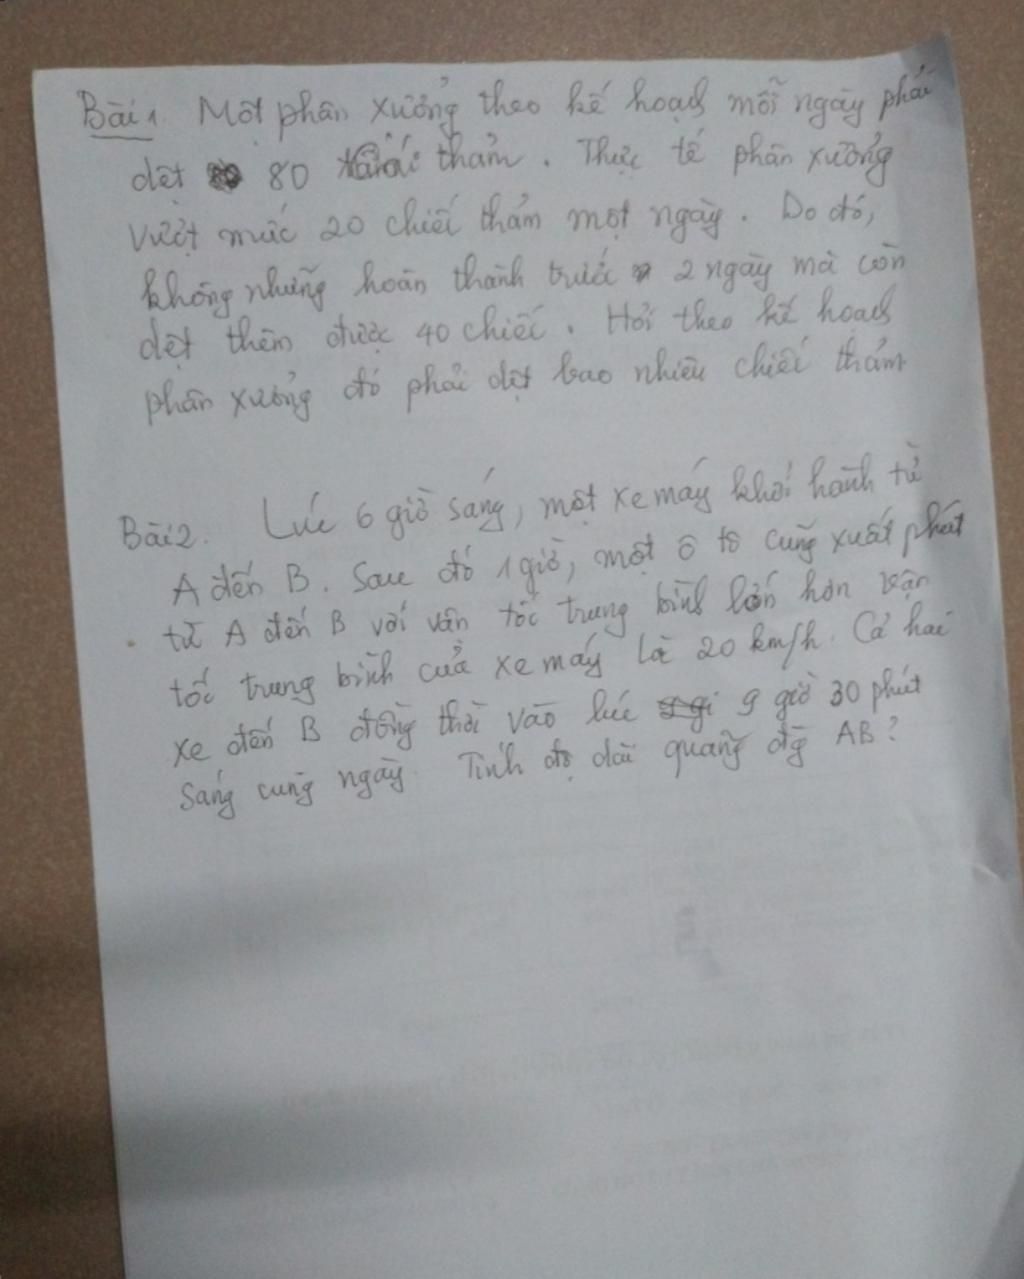 Bài 1. Một phân xưởng theo kế hoạch mỗi ngày phải
dệt 80 thảm. Thực tế phân xưởng
vượt mức 20 chiếc thảm một ngày. Do đó,
không những hoàn thành trước 2 ngày mà còn
dệt thêm được 40 chiếc. Hỏi theo kế hoạch
phân xưởng đó phải dệt bao nhiêu chiếc thảm
Bài 2. Lúc 6 giờ sáng, một xe máy khởi hành từ
A đến B. Sau đó 1 giờ, một ô tô cũng xuất phát
từ A đến B với vận tốc trung bình lớn hơn vận
tốc trung bình của xe máy là 20 km/h. Cả hai
xe đến B đồng thời vào lúc 9 giờ 30 phút
sáng cùng ngày. Tính độ dài quãng đg AB?